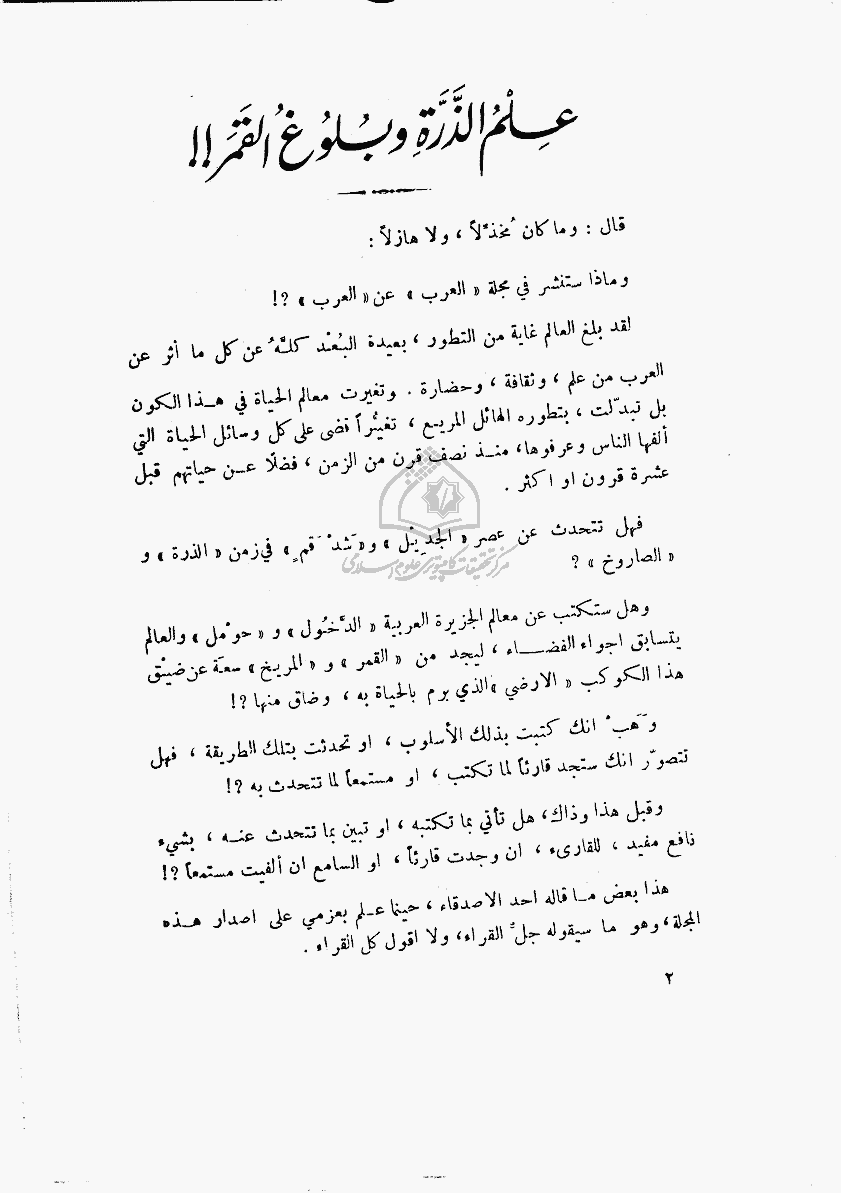 عِلْمُ الذَّرَّةِ وبُلُوغُ القَمَرَ !!
قال : وما كان مُخذِّلاً ، ولا هازلاً :
وماذا ستنشر في مجلة « العرب » عن « العرب » ؟!
لقد بلغ العالم غاية من التطور ، بعيدة البُعْد كلَّهُ عن كل ما أثر عن
العرب من علم ، وثقافة ، وحضارة . وتغيرت معالم الحياة في هـذا الكون
بل تبدّلت ، بتطوره الهائل المريع ، تغيُّراً قضى على كل وسائل الحياة التي
ألفها الناس وعرفوها، منـذ نصف قرن من الزمن ، فضلًا عـن حياتهم قبل
عشرة قرون او اكثر .
فهل تتحدث عن عصر « الجَدِيْل » و« شَدْ قَمٍ » في زمن « الذرة » و
« الصاروخ » ؟
وهل ستكتب عن معالم الجزيرة العربية « الدَّخُول » و « حوْمل » والعالم
يتسابق اجواء الفضـــاء ، ليجد من « القمر » و « المريخ » سعة عن ضيْق
هذا الكوكب « الارضي » الذي برم بالحياة به ، وضاق منها ؟!
وَهَبْ انك كتبت بذلك الأسلوب ، او تحدثت بتلك الطريقة ، فهل
تتصوّر انك ستجد قارئاً لما تكتب ، او مستمعاً لما تتحدث به ؟!
وقبل هذا وذاك، هل تأتي بما تكتبه ، او تبين بما تتحدث عنـه ، بشيء
نافع مفيد ، للقارىء ، ان وجدت قارئاً ، او السامع ان ألفيت مستمعاً ؟!
هذا بعض مـا قاله احد الاصدقاء ، حينما عـلم بعزمي على اصدار هـذه
المجلة، وهو ما سيقوله جلُّ القراء، ولا اقول كل القراء .
٢
مركز تحقیقات کامپیوتری علوم اسلامی